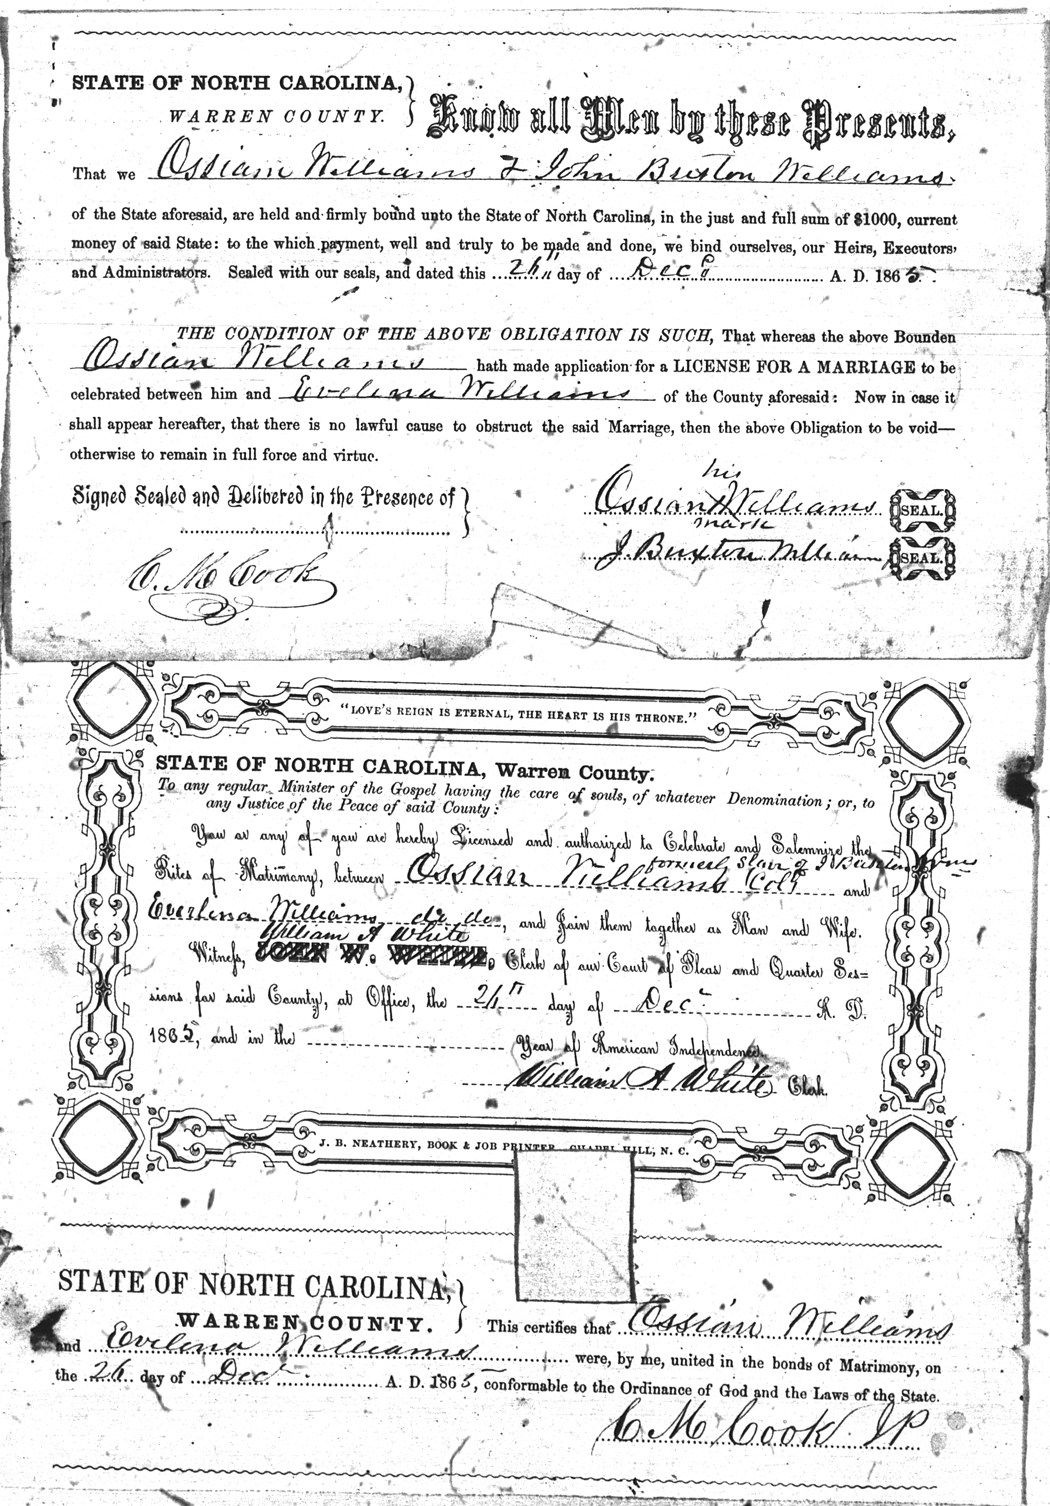 STATE OF NORTH CAROLINA,
WARREN COUNTY.
Know all Men by these Presents,
That we Ossian Williams & John Buxton Williams
of the State aforesaid, are held and firmly bound unto the State of North Carolina, in the just and full sum of $1000, current
money of said State: to the which payment, well and truly to be made and done, we bind ourselves, our Heirs, Executors,
and Administrators. Sealed with our seals, and dated this 26 day of Decr A. D. 1865.
THE CONDITION OF THE ABOVE OBLIGATION IS SUCH, That whereas the above Bounden
Ossian Williams hath made application for a LICENSE FOR A MARRIAGE to be
celebrated between him and Evelina Williams of the County aforesaid: Now in case it
shall appear hereafter, that there is no lawful cause to obstruct the said Marriage, then the above Obligation to be void—
otherwise to remain in full force and virtue.
Signed Sealed and Delivered in the Presence of
his
Ossian X Williams SEAL.
mark
J Buxton Williams SEAL.
C. M Cook
"LOVE'S REIGN IS ETERNAL, THE HEART IS HIS THRONE."
STATE OF NORTH CAROLINA, Warren County.
To any regular Minister of the Gospel having the care of souls, of whatever Denomination; or, to
any Justice of the Peace of said County:
You or any of you are hereby Licensed and authorized to Celebrate and Solemnize the
formerly Slave of J Buxton Wms
Rites of Matrimony, between Ossian Williams Cold and
Everlena Williams do do, and Join them together as Man and Wife.
William A White
Witness, JOHN W. WHITE, Clerk of our Court of Pleas and Quarter Ses=
sions for said County, at Office, the 26 day of Decr A. D.
1865, and in the Year of American Independence.
William A White Clerk.
J. B. NEATHERY, BOOK & JOB PRINTER, CHAPEL HILL, N. C.
STATE OF NORTH CAROLINA,
WARREN COUNTY.
This certifies that Ossian Williams
and Evelena Williams were, by me, united in the bonds of Matrimony, on
the 26 day of Decr A. D. 1865, conformable to the Ordinance of God and the Laws of the State.
C M Cook JP